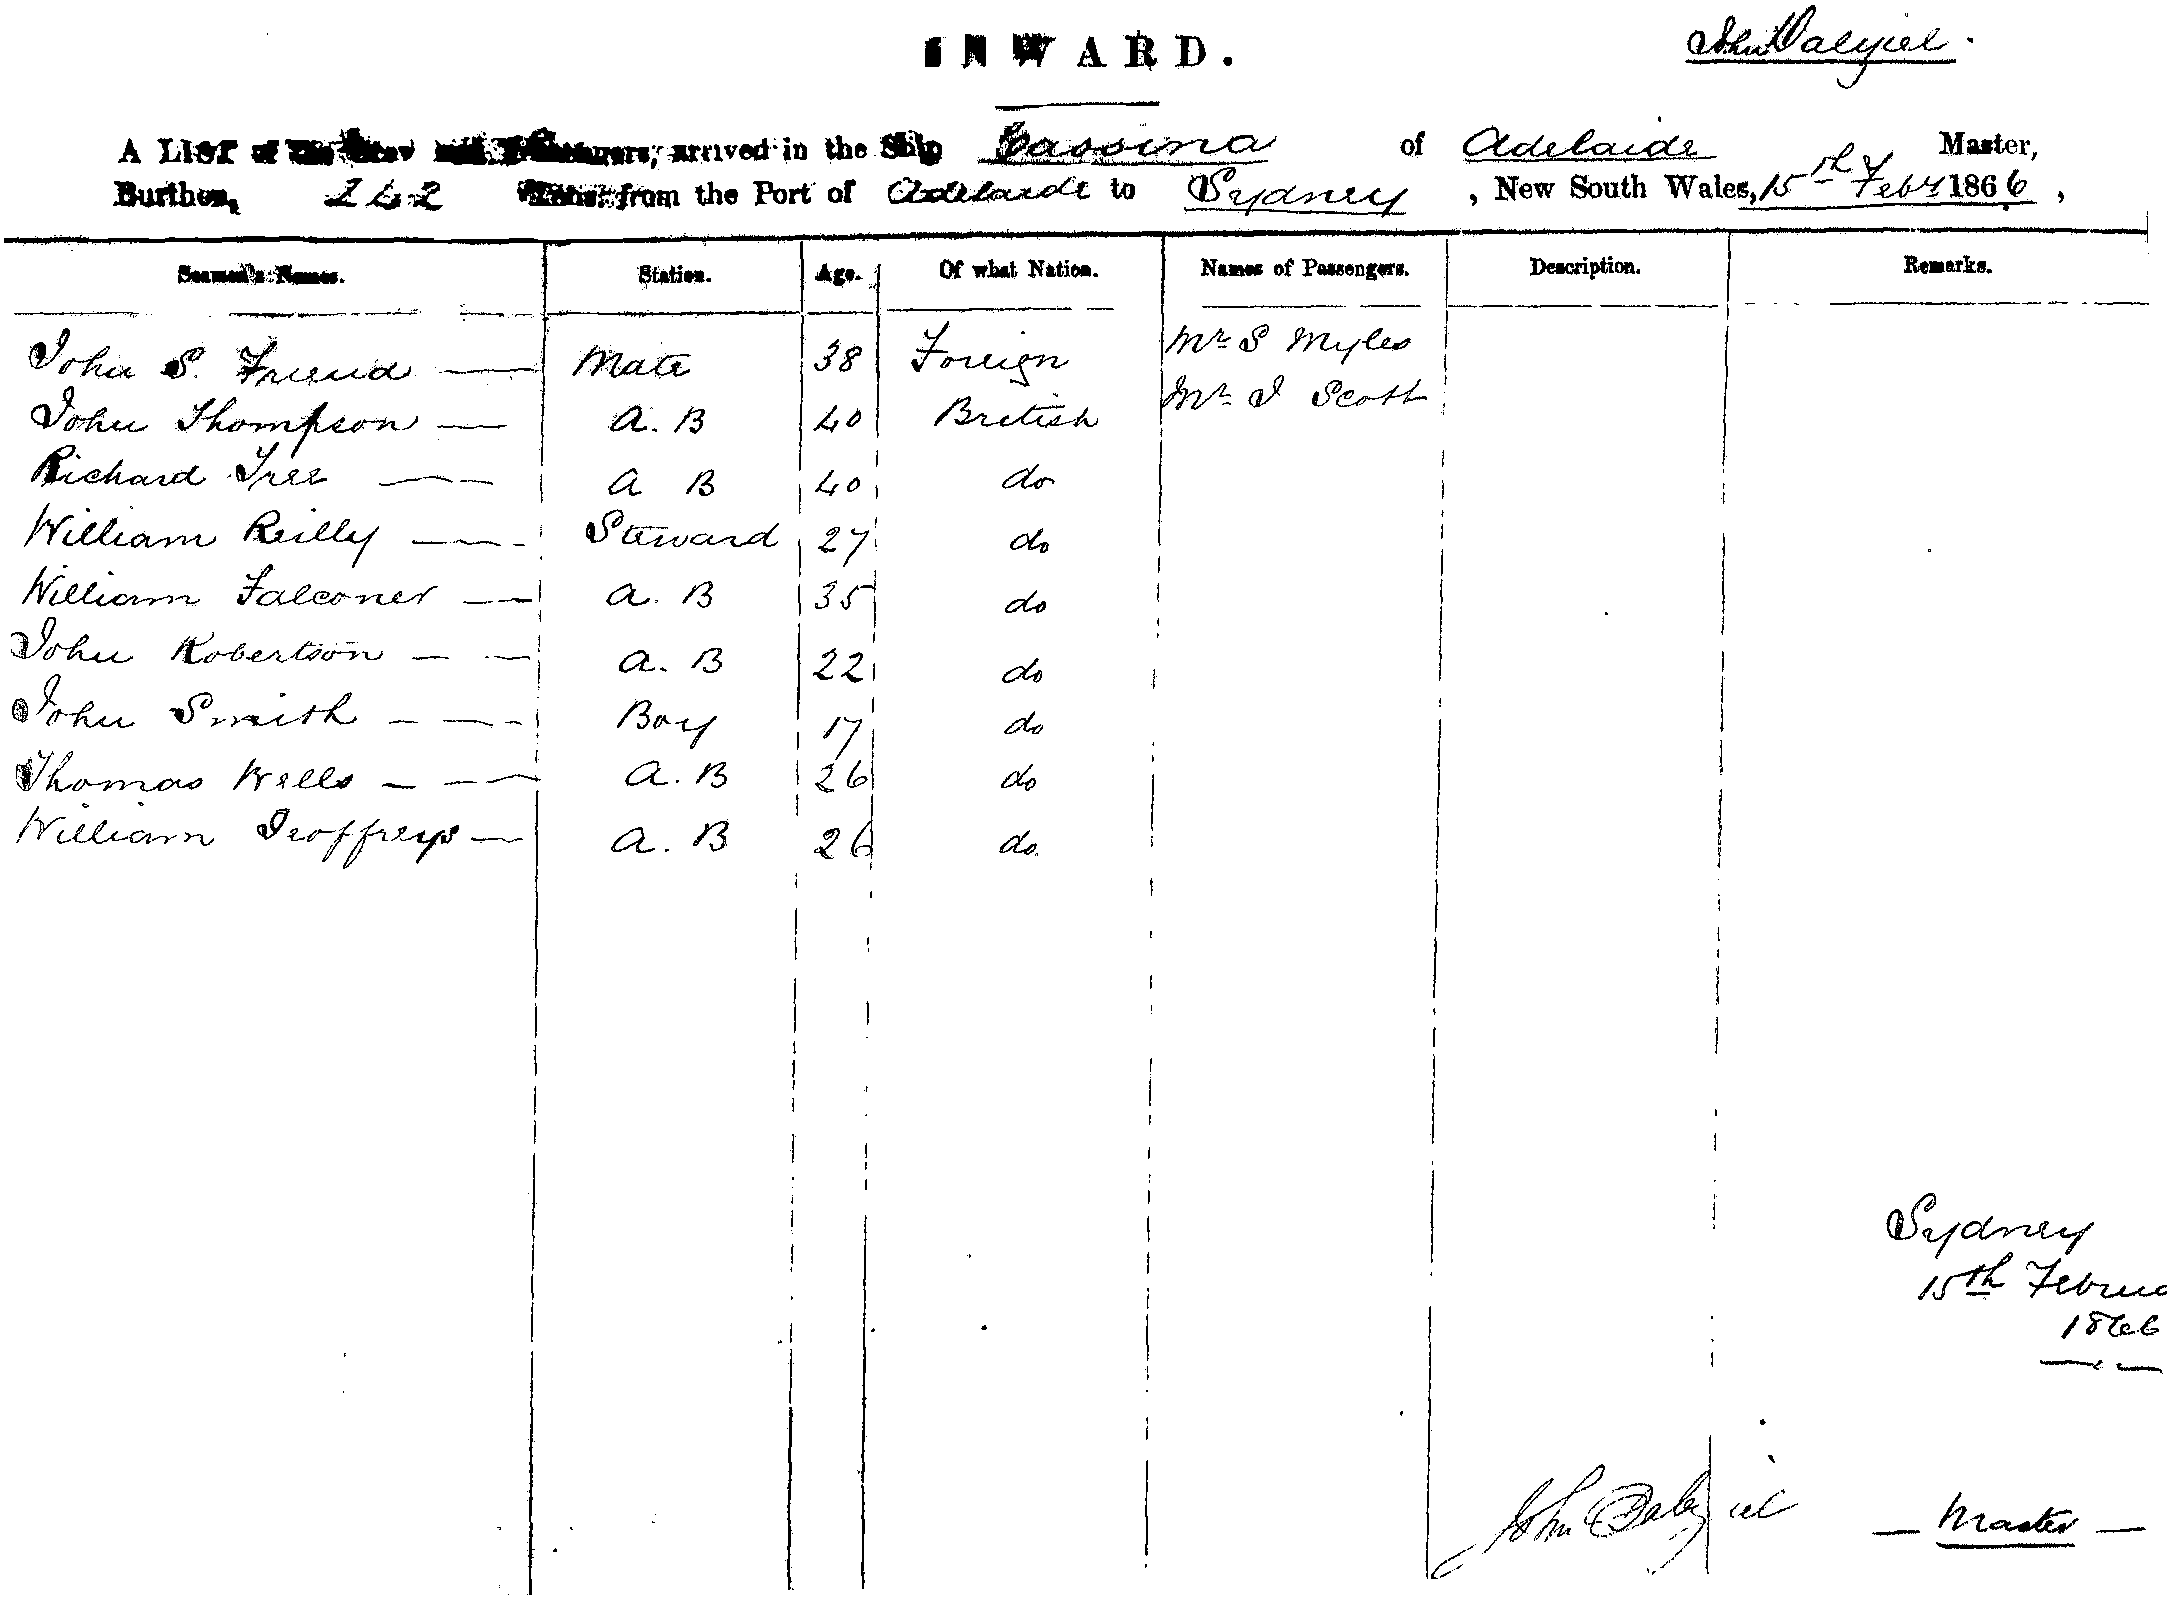 INWARD.
John Dalziel.
A LIST of the Crew and Passengers, arrived in the Ship Cassina of Adelaide Master,
Burthen, 242 Tons, from the Port of Adelaide to Sydney, New South Wales, 15th Feby 1866,
Seamen's Names. Station. Age. Of what Nation. Names of Passengers. Description. Remarks.
John S. Friend — Mate 38 Foreign Mr S Myles
John Thompson — A. B 40 British Mr J Scott
Richard Tree — A B 40 do
William Reilly — Steward 27 do
William Falconer — A. B 35 do
John Robertson — A. B 22 do
John Smith — Boy 17 do
Thomas Wells — A. B 26 do
William Jeoffreys — A. B 26 do
Sydney
15th Februa
1866
John Dalziel — Master —